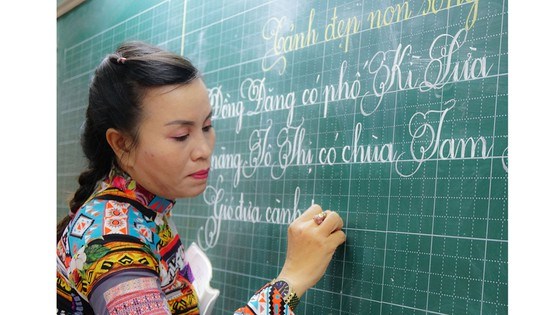 Cảnh đẹp non sông
Đồng Đăng có phố Kì Lừa
nàng Tô Thị có chùa Tam
Gió đưa cành